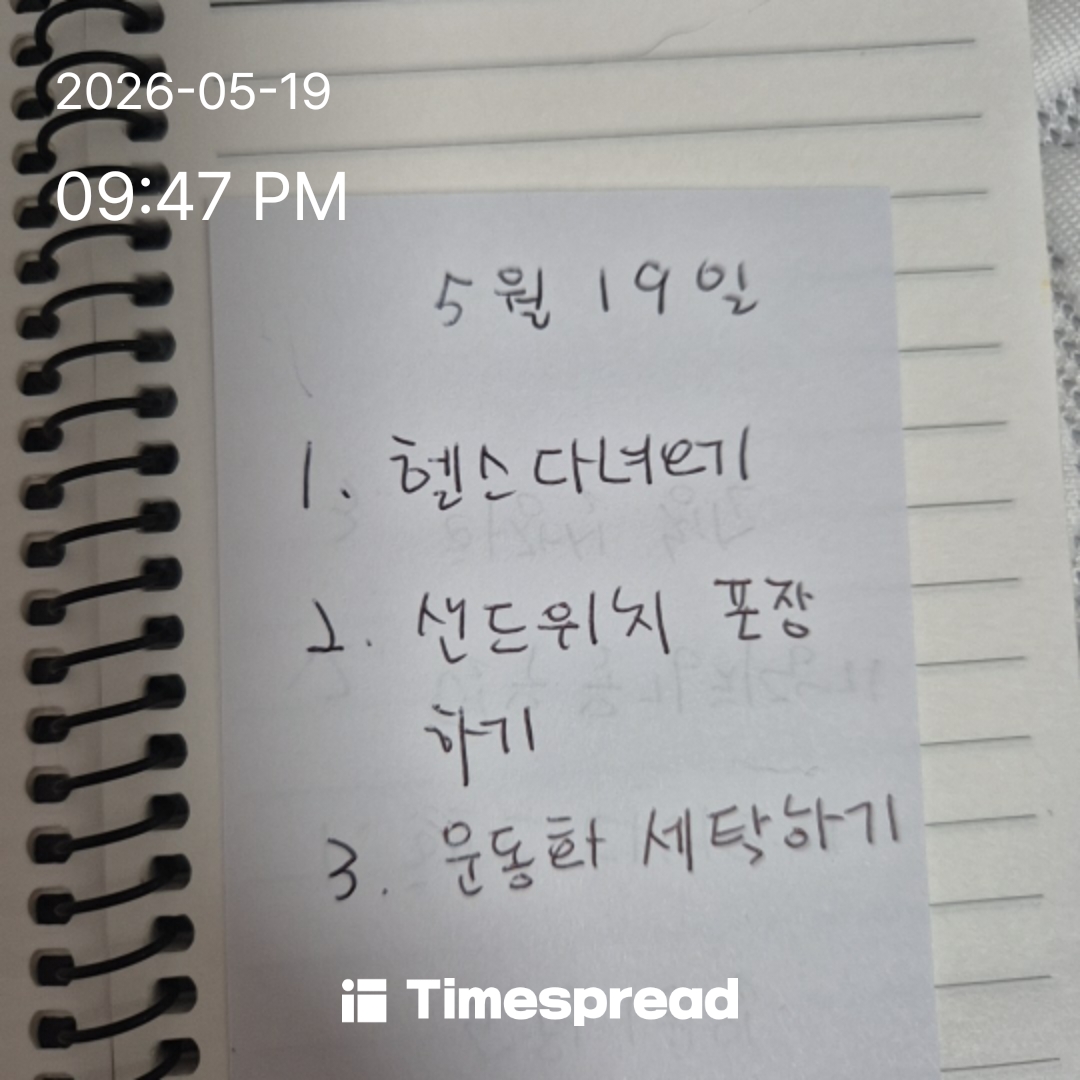 2026-05-19
09:47 PM
5월 19일
1. 헬스다녀오기
2. 샌드위치 포장
하기
3. 운동화 세탁하기
Timespread